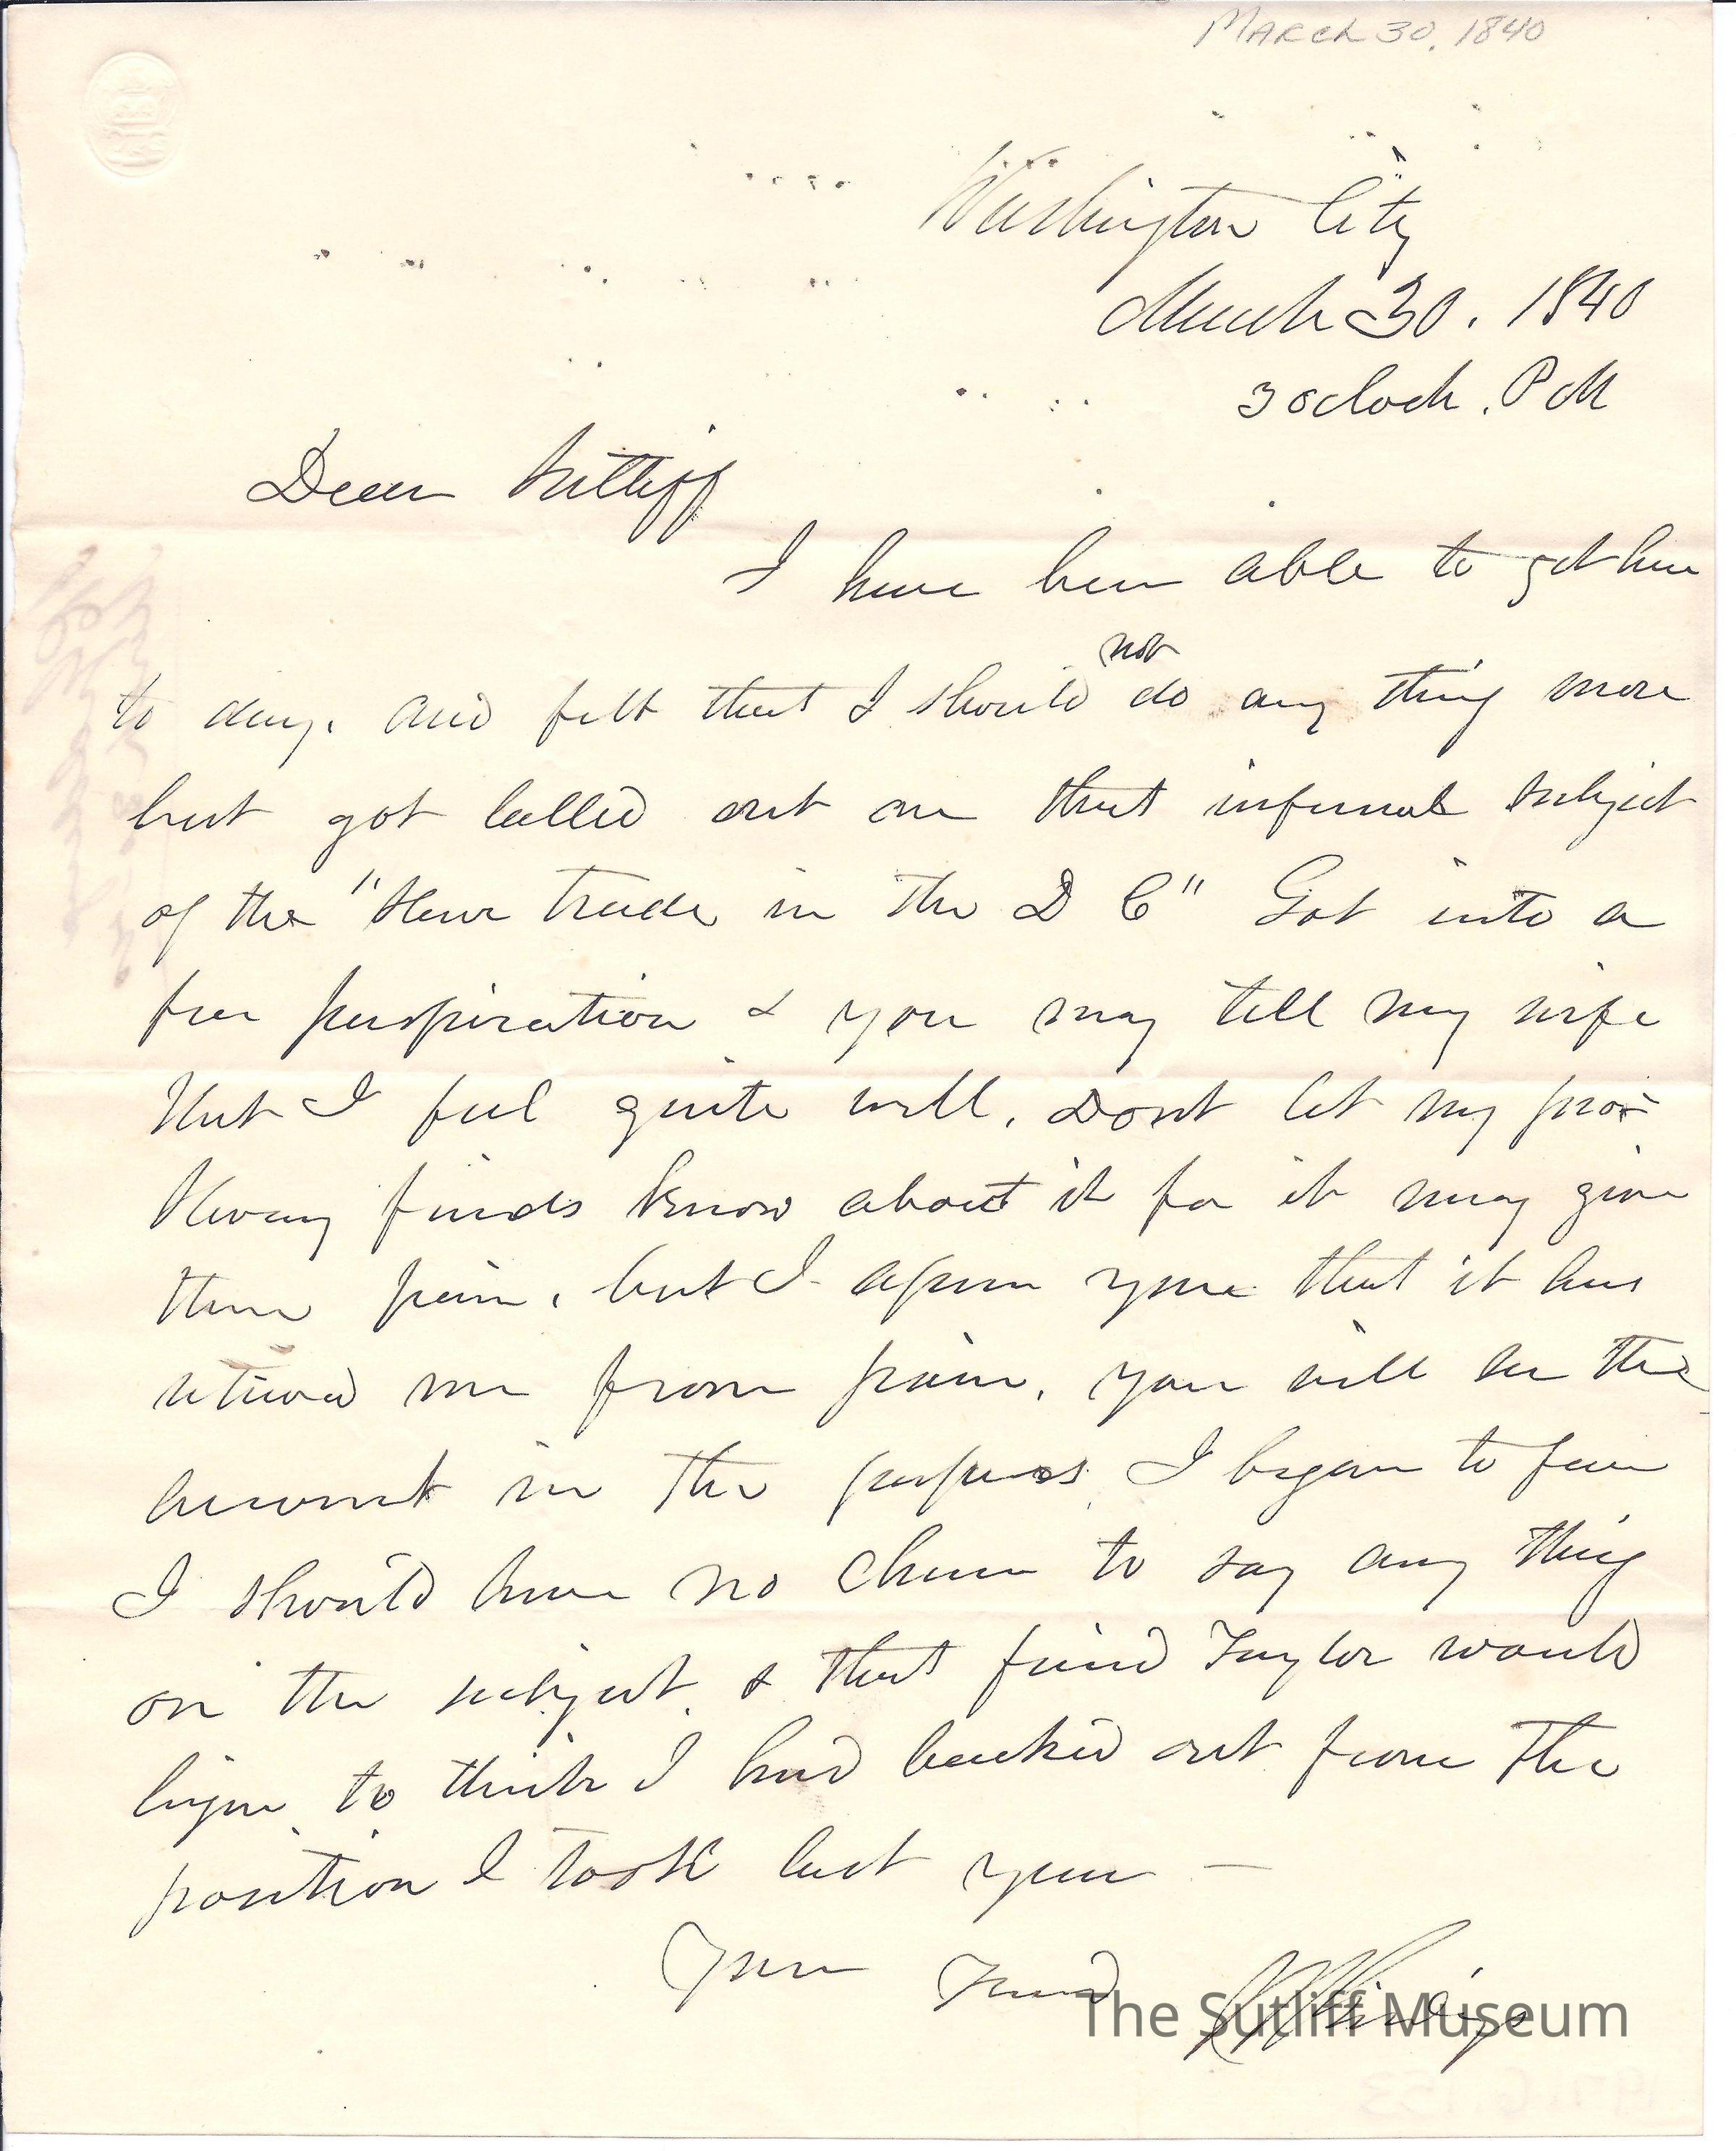 March 30, 1840
Washington City
March 30. 1840
3 oclock. P M
Dear Sutliff
I have been able to get here
to day. and felt that I should not do any thing more
but got called out on that infernal subject
of the "slave trade in the D C" Got into a
free perspiration & you may tell my wife
that I feel quite well, Dont let my pro
slavery friends know about it for it may give
them pain, but I assure you that it has
relieved me from pain, you will see the
account in the papers I began to fear
I should have no chance to say any thing
on the subject & that friend Taylor would
begin to think I had backed out from the
position I took last year —
Your Friend J R Giddings
The Sutliff Museum